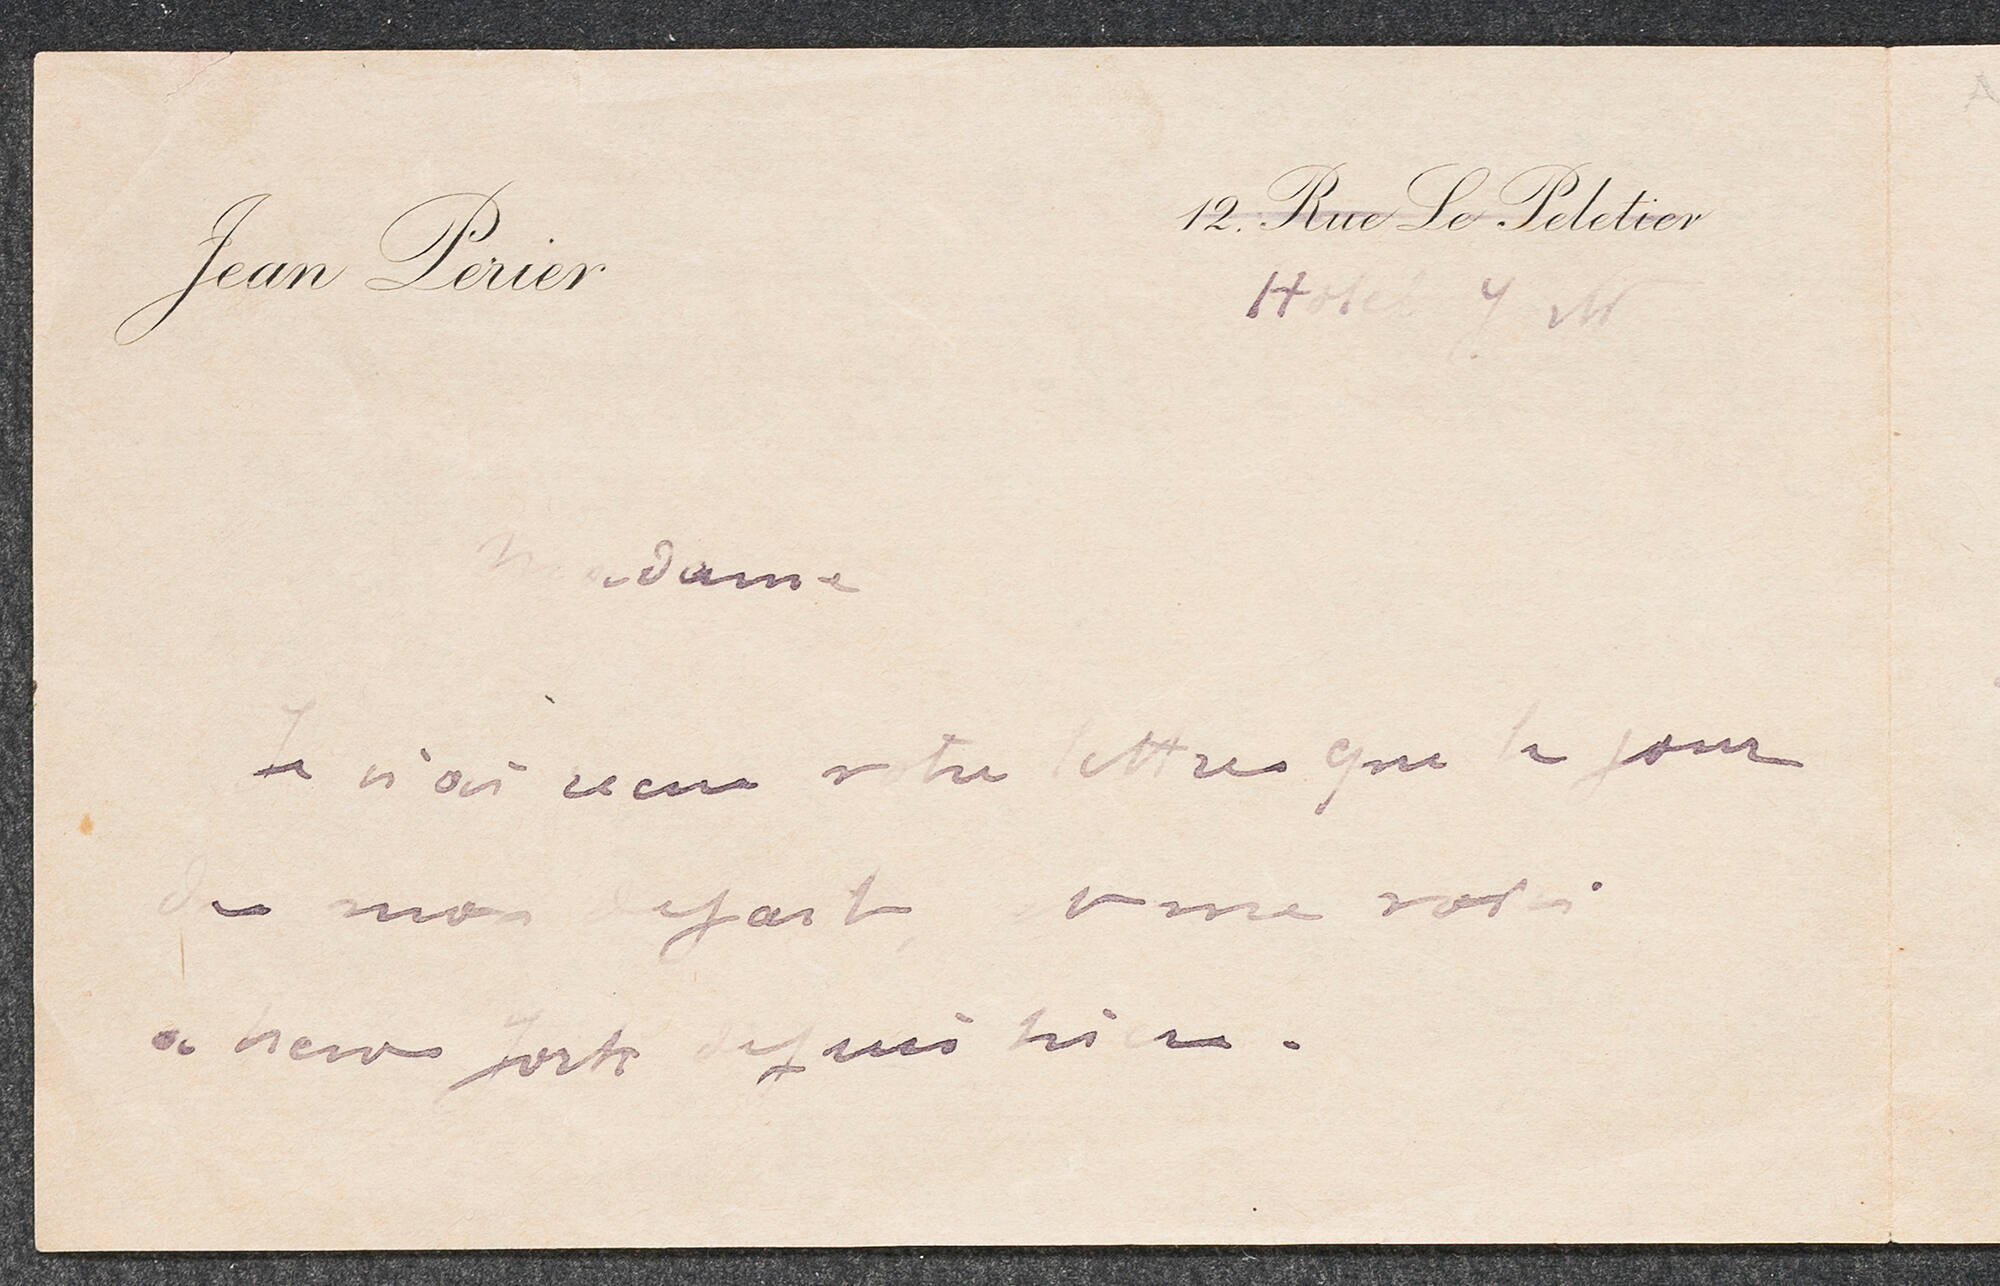 Jean Périer
12. Rue Le Peletier
Hotel
Madame
Je n'ai recu votre lettres que le jour
de mon depart, et me voici
a New York depuis hier.